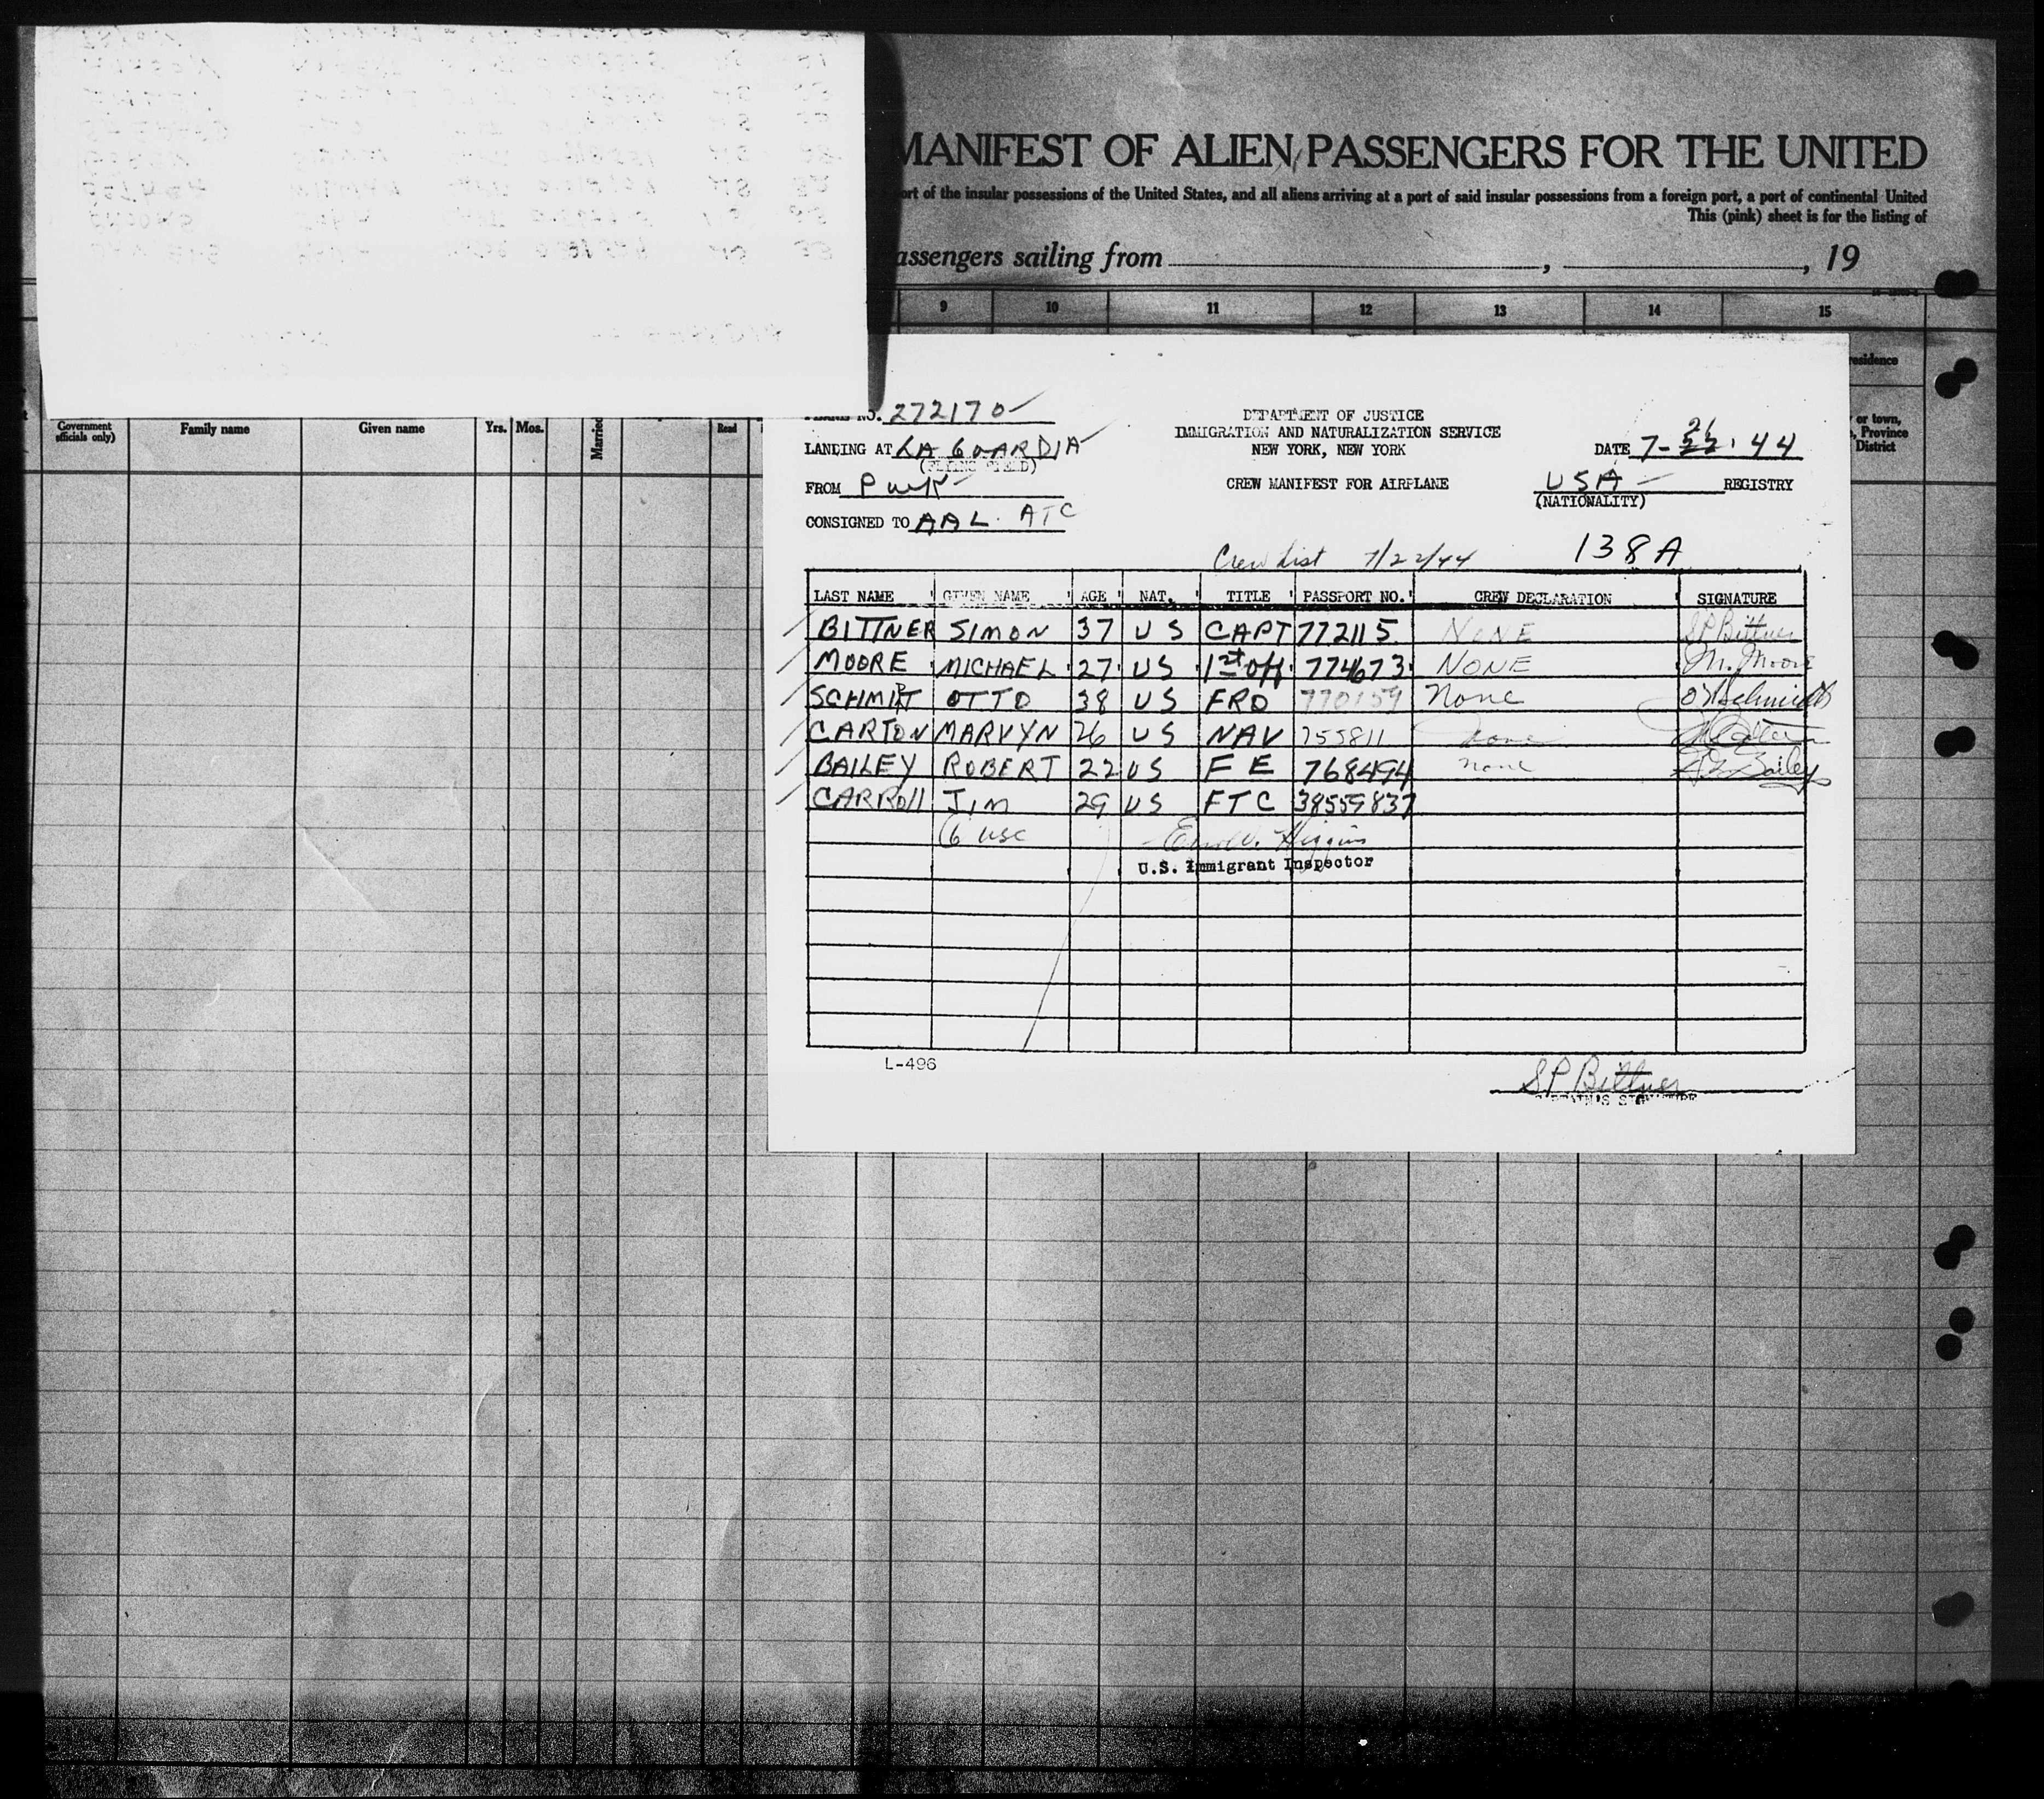 MANIFEST OF ALIEN PASSENGERS FOR THE UNITED
ort of the insular possessions of the United States, and all aliens arriving at a port of said insular possessions from a foreign port, a port of continental United
This (pink) sheet is for the listing of
assengers sailing from , , 19
9 10 11 12 13 14 15
esidence
or town,
, Province
District
Government
officials only)
Family name
Given name
Yrs. Mos.
Married
Read
NO. 272170
LANDING AT LA GUARDIA
(FLYING FIELD)
FROM
CONSIGNED TO AAL. ATC
DEPARTMENT OF JUSTICE
IMMIGRATION AND NATURALIZATION SERVICE
NEW YORK, NEW YORK
CREW MANIFEST FOR AIRPLANE
26
DATE 7-22-44
USA REGISTRY
(NATIONALITY)
Crew List 7/22/44 138A
LAST NAME GIVEN NAME AGE NAT. TITLE PASSPORT NO. CREW DECLARATION SIGNATURE
BITTNER SIMON 37 US CAPT 772115 NONE SP Bittner
MOORE MICHAEL 27 US 1st Off 774673 NONE M. Moore
SCHMIDT OTTO 38 US FRO 770159 None O Schmidt
CARTON MARVYN 26 US NAV 755811 none
BAILEY ROBERT 22 US F E 768494 none Bailey
CARROll Jim 29 US FTC 38559837
6 usc Higgins
U.S. Immigrant Inspector
L-496
SP Bittner
CAPTAIN'S SIGNATURE